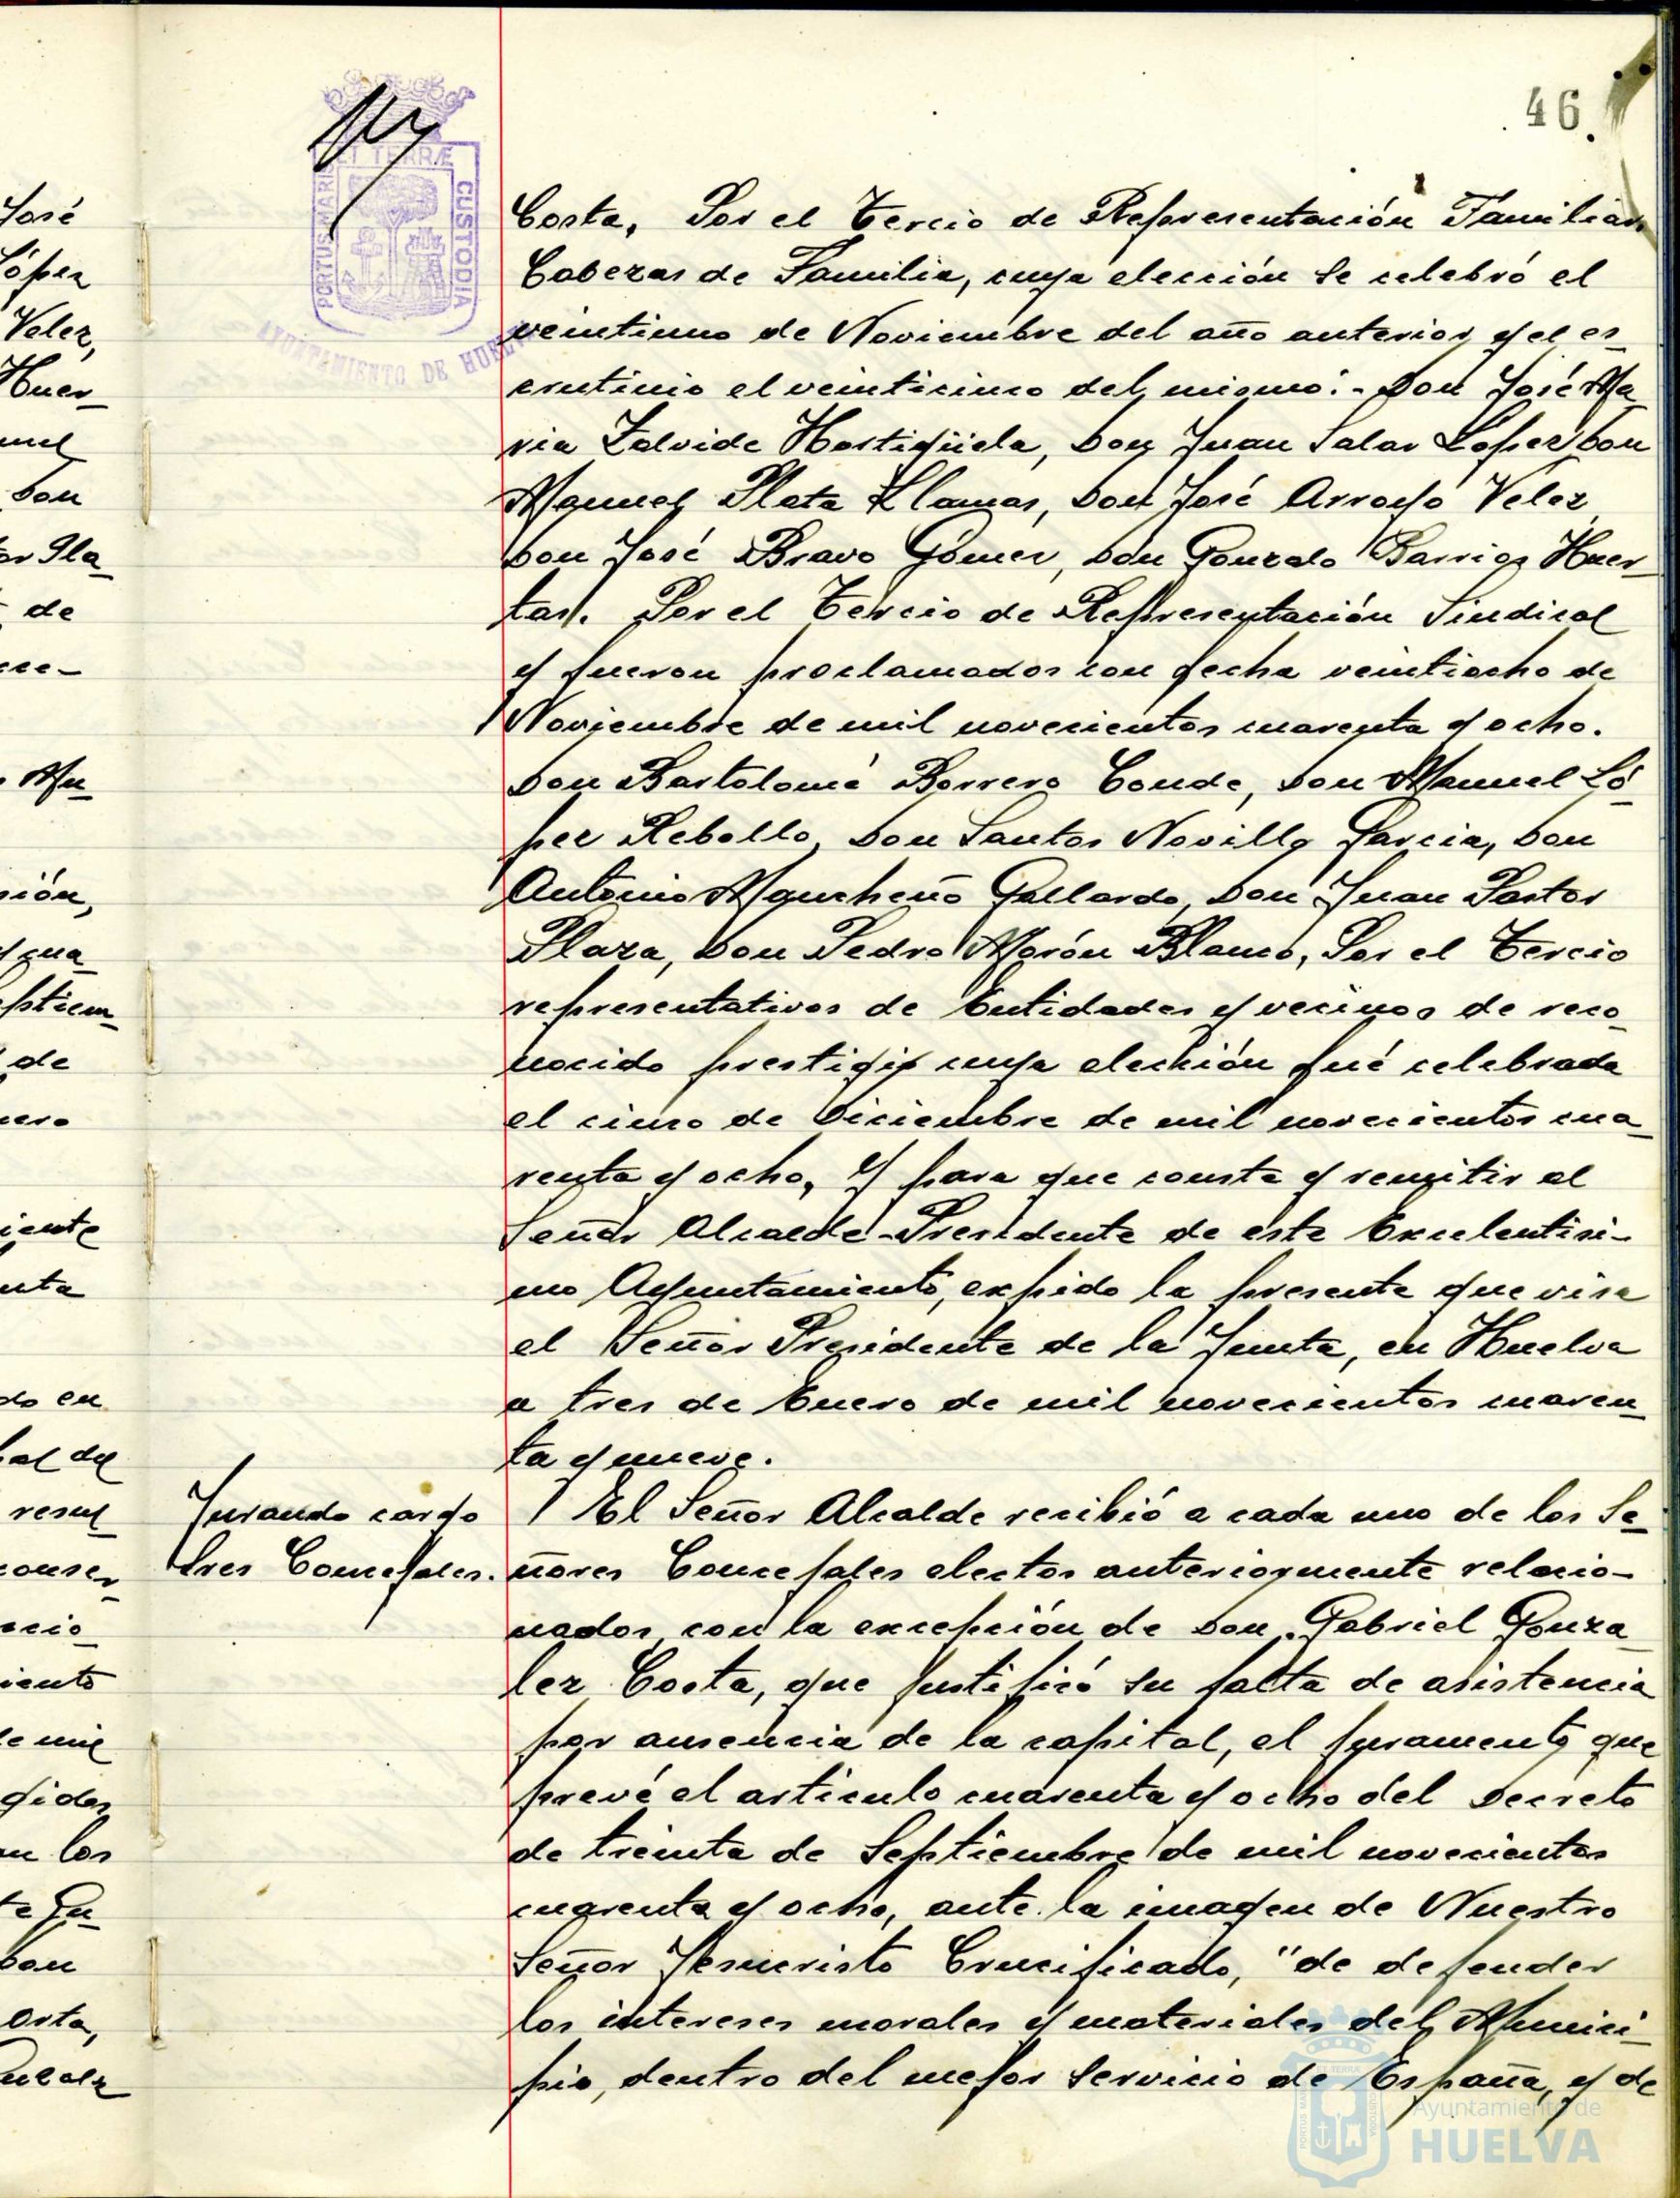 46.
ET TERRÆ
PORTUS MARIS
CUSTODIA
AYUNTAMIENTO DE HUELVA
José
López
Velez,
Huer_
Don
de
sión,
de
do en
resul_
los
Costa, Por el Tercio de Representación Familiar,
Cabezas de Familia, cuya elección se celebró el
veintiuno de Noviembre del año anterior y el es_
crutinio el veinticinco del mismo:- Don José Ma_
ria Zalvide Hostigüela, Don Juan Salas López, Don
Manuel Plata Llamas, Don José Arroyo Velez,
Don José Bravo Gómez, Don Gonzalo Barrios Huer_
tas. Por el Tercio de Representación Sindical
y fueron proclamados con fecha veintiocho de
Noviembre de mil novecientos cuarenta y ocho.
Don Bartolomé Borrero Conde, Don Manuel Ló_
pez Rebollo, Don Santos Novillo Garcia, Don
Antonio Mancheño Gallardo, Don Juan Pastor
Plaza, Don Pedro Morón Blanco, Por el Tercio
representativos de Entidades y vecinos de reco_
nocido prestigio cuya elección fué celebrada
el cinco de Diciembre de mil novecientos cua_
renta y ocho, Y para que conste y remitir al
Señor Alcalde-Presidente de este Excelentisi-
mo Ayuntamiento, expido la presente que visa
el Señor Presidente de la Junta, en Huelva
a tres de Enero de mil novecientos cuaren_
ta y nueve.
Jurando cargo
tres Concejales.
El Señor Alcalde recibió a cada uno de los Se_
ñores Concejales electos anteriormente relacio-
nados, con la excepción de Don Gabriel Gonza_
lez Costa, que justificó su falta de asistencia
por ausencia de la capital, el juramento que
prevé el articulo cuarenta y ocho del Decreto
de treinta de Septiembre de mil novecientos
cuarenta y ocho, ante la imagen de Nuestro
Señor Jesucristo Crucificado, "de defender
los intereses morales y materiales del Munici_
pio, dentro del mejor servicio de España, y de
Ayuntamiento de
HUELVA